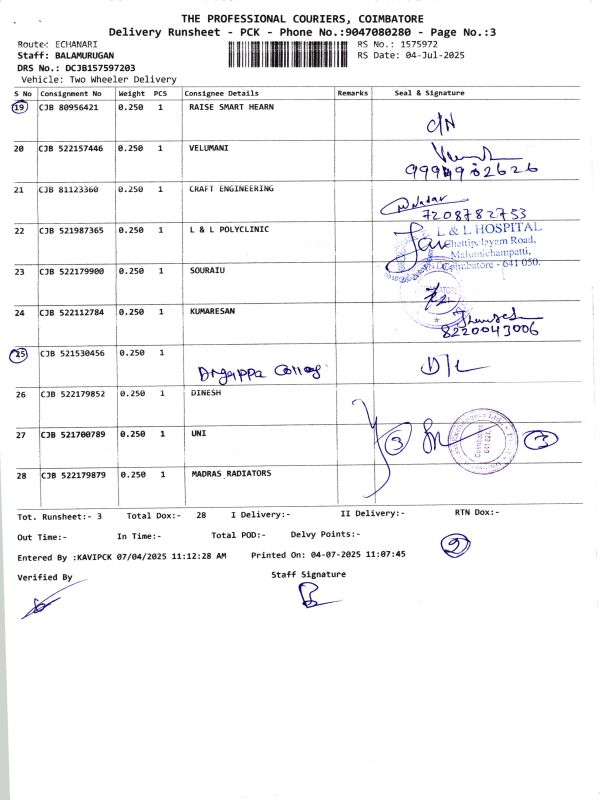 THE PROFESSIONAL COURIERS, COIMBATORE
Delivery Runsheet - PCK - Phone No.:9047080280 - Page No.:3
Route: ECHANARI RS No.: 1575972
Staff: BALAMURUGAN RS Date: 04-Jul-2025
DRS No.: DCJB157597203
Vehicle: Two Wheeler Delivery
S No Consignment No Weight PCS Consignee Details Remarks Seal & Signature
19 CJB 80956421 0.250 1 RAISE SMART HEARN
20 CJB 522157446 0.250 1 VELUMANI
21 CJB 81123360 0.250 1 CRAFT ENGINEERING
7208782753
22 CJB 521987365 0.250 1 L & L POLYCLINIC
L & L HOSPITAL
Chettipalayam Road,
Malumichampatti,
Coimbatore - 641 050.
23 CJB 522179900 0.250 1 SOURAIU
24 CJB 522112784 0.250 1 KUMARESAN
8220043006
25 CJB 521530456 0.250 1
D/L
26 CJB 522179852 0.250 1 DINESH
27 CJB 521700789 0.250 1 UNI
3 3
28 CJB 522179879 0.250 1 MADRAS RADIATORS
Tot. Runsheet:- 3 Total Dox:- 28 I Delivery:- II Delivery:- RTN Dox:-
Out Time:- In Time:- Total POD:- Delvy Points:-
Entered By :KAVIPCK 07/04/2025 11:12:28 AM Printed On: 04-07-2025 11:07:45
Verified By Staff Signature